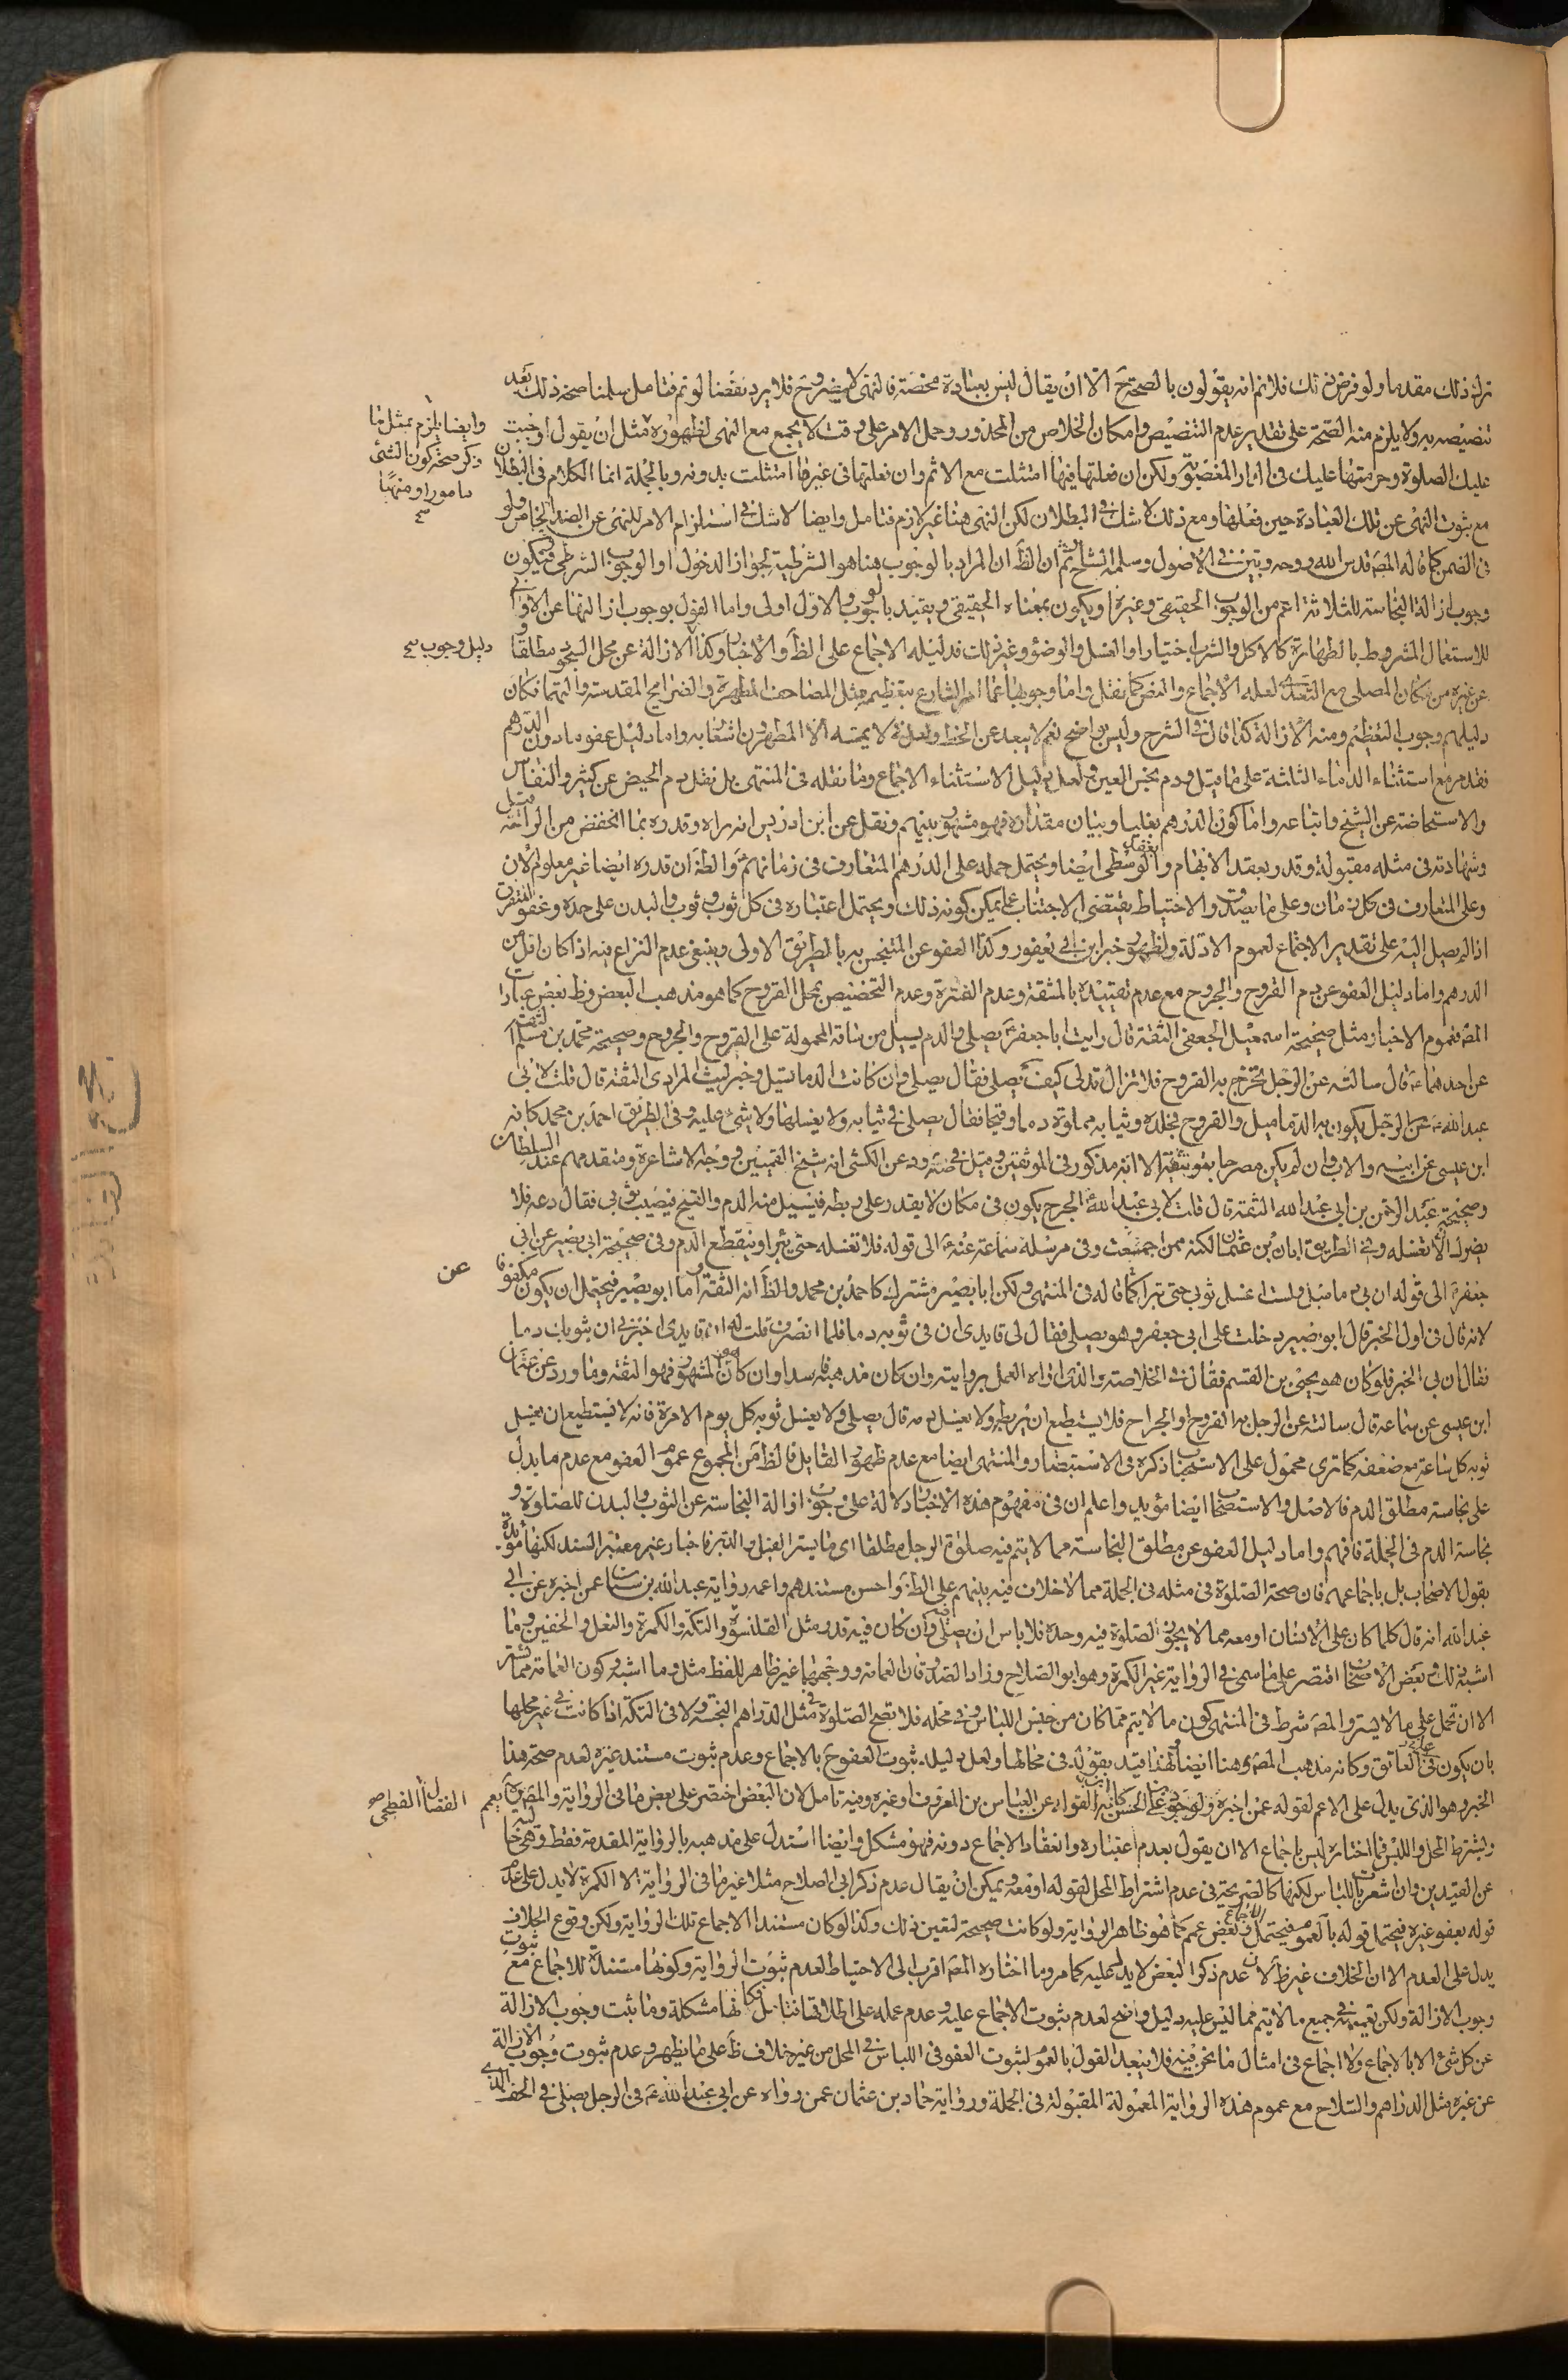 ترك ذلك مقدما ولو فرض ذلك فلا ثم انه يقولون بالصحة ح الا ان يقال ليس بعبادة محضة فالنهى لا يضر وح فلا يرد نقضنا لو تم فتامل سلمنا صحة ذلك بعد
تنصيصه به ولا يلزم منه الصحة على تقدير عدم التنصيص وامكان الخلاص من المحذور وحمل الامر على وقت لا يجمع مع النهى لظهوره مثل ان يقول اوجبت
عليك الصلوة وحرمتها عليك فى الدار المغصوبة ولكن ان فعلتها فيها امتثلت مع الاثم وان فعلتها فى غيرها امتثلت بدونه وبالجملة انما الكلام فى البطلان
مع ثبوت النهى عن تلك العبادة حين فعلها ومع ذلك لا شك فى البطلان لكن النهى هنا غير لازم فتامل وايضا لا شك فى استلزام الامر للنهى عن الضد الخاص ولو
فى الضمن كما قاله المصَ قدس الله روحه وبين فى الاصول وسلمه الشارح ثم ان الظَ ان المراد بالوجوب هنا هو الشرطية لجواز الدخول او الوجوب الشرطى فيكون
وجوب ازالة النجاسة للثلاثة اعم من الوجوب الحقيقى وغيره او يكون بمعناه الحقيقى ويقيد بالوجوب والاول اولى واما القول بوجوب ازالتها عن الاوانى
للاستعمال المشروط بالطهارة كالاكل والشرب اختيارا والغسل والوضوء وغير ذلك فدليله الاجماع على الظَ والاخبار وكذا الازالة عن محل السجود مطلقا
عن غيره من مكان المصلى مع التعدى لعله الاجماع والنص كما نقل واما وجوبها عما امر الشارع بتعظيمه مثل المصاحف المطهرة والضرايح المقدسة والتهما فكان
دليلهم وجوب التعظيم ومنه الازالة كذا قال فى الشرح وليس بواضح نعم لا يبعد عن الخط ولعل فى لا يمسه الا المطهرون اشعارا به واما دليل عفو ما دون الدرهم
فقد مر مع استثناء الدماء الثلثة على ما قيل ودم نجس العين ولعل دليل الاستثناء الاجماع وما نقله فى المنتهى بل نقل دم الحيض عن كثير والنفاس
والاستحاضة عن الشيخ واتباعه واما كون الدرهم بغليا وبيان مقداره فهو مشهور بينهم ونقل عن ابن ادريس انه راه وقدره بما انخفض من الراحة قيل
وشهادته فى مثله مقبولة وقدر بعقد الابهام والوسطى ايضا ويحتمل حمله على الدرهم المتعارف فى زمانهم َع والظَ ان قدره ايضا غير معلوم الان
وعلى المتعارف فى كل زمان وعلى ما يصدق والاحتياط يقتضى الاجتناب عما يمكن كونه ذلك ويحتمل اعتباره فى كل ثوب ثوب والبدن على حدة وعفو المتفرق
اذا لم يصل اليه على تقدير الاجتماع لعموم الادلة ولظهور خبر ابن ابى يعفور وكذا العفو عن المتنجس به بالطريق الاولى وينبغى عدم النزاع فيه اذا كان اقل من
الدرهم واما دليل العفو عن دم القروح والجروح مع عدم تقييده بالمشقة وعدم الفترة وعدم التخصيص بمحل القروح كما هو مذهب البعض وظ بعض عبارات
المصَ فعموم الاخبار مثل صحيحة اسمعيل الجعفى الثقة قال رايت ابا جعفرَع يصلى والدم يسيل من ساقه المحمولة على القروح والجروح وصحيحة محمد بن مسلم الثقة
عن احدهماَع قال سالته عن الرجل يخرج به القروح فلا تزال تدمى كيف يصلى فقال يصلى وان كانت الدما تسيل وخبر ليث المرادى الثقة قال قلت لابى
عبد اللهَع عن الرجل يكون به الدماميل والقروح فجلده وثيابه مملوة دما وقيحا فقال يصلى فى ثيابه ولا يغسلها ولا شئ عليه وفى الطريق احمد بن محمد كانه
ابن عيسى عن ابيه والاب وان لم يكن مصرحا بتوثيقه الا انه مذكور فى الموثقين وقيل فى ضه ود عن الكشى انه شيخ القميين ووجه الاشاعرة ومتقدمهم عند السلطان
وصحيحة عبد الرحمن بن ابى عبد الله الثقة قال قلت لابى عبد اللهَع الجرح يكون فى مكان لا يقدر على ربطه فيسيل منه الدم والقيح فيصيب ثوبى فقال دعه فلا
يضرك الا تغسله وفى الطريق ابان بن عثمان لكنه ممن اجمعت وفى مرسلة سماعة عنهَع الى قوله فلا تغسله حتى يبرا وينقطع الدم وفى صحيحة ابى بصير عن ابى
جعفرَع الى قوله ان بى دماميل ولست اغسل ثوبى حتى تبرا كما قاله فى المنتهى ولكن ابا بصير مشترك كاحمد بن محمد والظَ انه الثقة واما ابو بصير فيحتمل ان يكون مكفوفا
لانه قال فى اول الخبر قال ابو بصير دخلت على ابى جعفر وهو يصلى فقال لى قايدى ان فى ثوبه دما فلما انصرف قلت له ان قايدى اخبرنى ان بثوبك دما
فقال ان بى الخبر فلو كان هو يحيى بن القسم فقال فى الخلاصة والذى اراه العمل بروايته وان كان مذهبه فاسدا وان كان المشهور فهو الثقة وما ورد عن عثمان
ابن عيسى عن سماعة قال سالته عن الرجل به القروح او الجراح فلا يستطيع ان يربطه ولا يغسل دمه قال يصلى ولا يغسل ثوبه كل يوم الا مرة فانه لا يستطيع ان يغسل
ثوبه كل ساعة مع ضعفه كما ترى محمول على الاستحباب ذكره فى الاستبصار والمنتهى ايضا مع عدم ظهور القايل فالظَ من المجموع عموم العفو مع عدم ما يدل
على نجاسة مطلق الدم فالاصل والاستصحاب ايضا مؤيد واعلم ان فى مفهوم هذه الاخبار دلالة على وجوب ازالة النجاسة عن الثوب والبدن للصلوة و
نجاسة الدم فى الجملة فافهم واما دليل العفو عن مطلق النجاسة مما لا يتم فيه صلوة الرجل مطلقا اى ما يستر القبل والدبر فاخبار غير معتبر السند لكنها مؤيدة
بقول الاصحاب بل باجماعهم فان صحة الصلوة فى مثله فى الجملة مما لا خلاف فيه بينهم على الظَ واحسن مستندهم واعمه رواية عبد الله بن سنان عمن اخبره عن ابى
عبد الله انه قال كلما كان على الانسان او معه مما لا يجوز الصلوة فيه وحده فلا باس ان يصلى فيه وان كان فيه قذر مثل القلنسوة والتكة والكمرة والنعل والخفين وما
اشبه ذلك وبعض الاصحاب اقتصر على ما سمى فى الرواية غير الكمرة وهو ابو الصلاح وزاد الصدوق ان العمامة ووجهها غير ظاهر للفظ مثل وما اشبه وكون العمامة مما تستر
الا ان تحمل على ما لا يستر والمصَ شرط فى المنتهى كون ما لا يتم مما كان من جنس اللباس وفى محله فلا تصح الصلوة فى مثل الدراهم النجسة ولا فى التكة اذا كانت فى غير محلها
بان يكون على العاتق وكانه مذهب المصَ وهنا ايضا ولهذا قيد بقوله فى محالها ولعل دليله ثبوت العفو ح بالاجماع وعدم ثبوت مستند غيره لعدم صحة هذا
الخبر وهو الذى يدل على الاعم لقوله عمن اخبره ولوجود على بن الحسن كانه عن العباس بن المعروف او غيره وفيه تامل لان البعض اختصر على بعض ما فى الرواية والمصَره يعمم
ويشترط المحل واللبس فما اختاره ليس باجماع الا ان يقول بعدم اعتباره وانعقاد الاجماع دونه فهو مشكل وايضا استدل على مذهبه بالرواية المقدمة فقط وهى خالية
عن القيدين وان اشعر باللباس لكنها كالصريحة فى عدم اشتراط المحل لقوله او معه ويمكن ان يقال عدم ذكر ابى الصلاح مثلا غير ما فى الرواية الا الكمرة لا يدل على عدم
قوله بعفو غيره فيحتمل قوله بالعموم فيحتمل الاجماع وبعض عمم كما هو ظاهر الرواية ولو كانت صحيحة لتعين ذلك وكذا لو كان مستند الاجماع تلك الرواية ولكن وقوع الخلاف
يدل على العدم الا ان الخلاف غير ظَ لان عدم ذكر البعض لا يدل عليه كما مر وما اختاره المصَ اقرب الى الاحتياط لعدم ثبوت الرواية وكونها مستندة للاجماع مع ثبوت
وجوب الازالة ولكن تعميمه فى جميع ما لا يتم مما ليس عليه دليل واضح لعدم ثبوت الاجماع عليه وعدم عمله على اطلاقها فتامل فكانها مشكلة وما ثبت وجوب الازالة
عن كل شئ الا بالاجماع ولا اجماع فى امثال ما نحن فيه فلا يبعد القول بالعموم لثبوت العفو فى اللباس فى المحل من غير خلاف ظَ على ما يظهر وعدم ثبوت وجوب الازالة
عن غيره مثل الدراهم والسلاح مع عموم هذه الرواية المعمولة المقبولة فى الجملة ورواية حماد بن عثمان عمن رواه عن ابى عبد اللهَع فى الرجل يصلى فى الخف الذى
وايضا يلزم بمثل ما
ذكر صحة كون الشئ
مامورا ومنهيا
دليل وجوب
عن
الفضال الفطحى